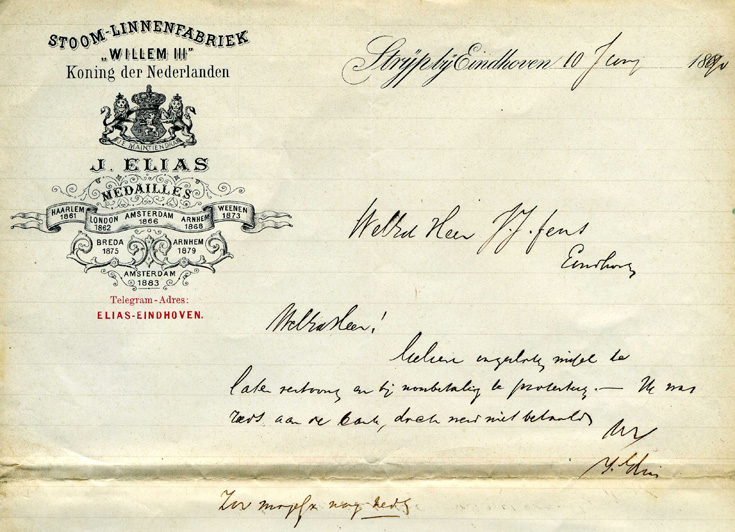 STOOM-LINNENFABRIEK
„WILLEM III"
Koning der Nederlanden
JE MAINTIENDRAI
J. ELIAS
MEDAILLES
HAARLEM 1861
LONDON 1862
AMSTERDAM 1866
ARNHEM 1868
WEENEN 1873
BREDA 1875
ARNHEM 1879
AMSTERDAM 1883
Telegram-Adres:
ELIAS-EINDHOVEN.
Strijp bij Eindhoven 10 Juny 1890
WelEd Heer J.J. Fens
Eindhoven
WelEd Heer!
Gelieve ingesloten wissel te
laten vertoonen en bij nonbetaling te protesteeren. — He was
reeds aan de bank, doch werd niet betaald
J. Elias
Zoo mogelijk nog heden